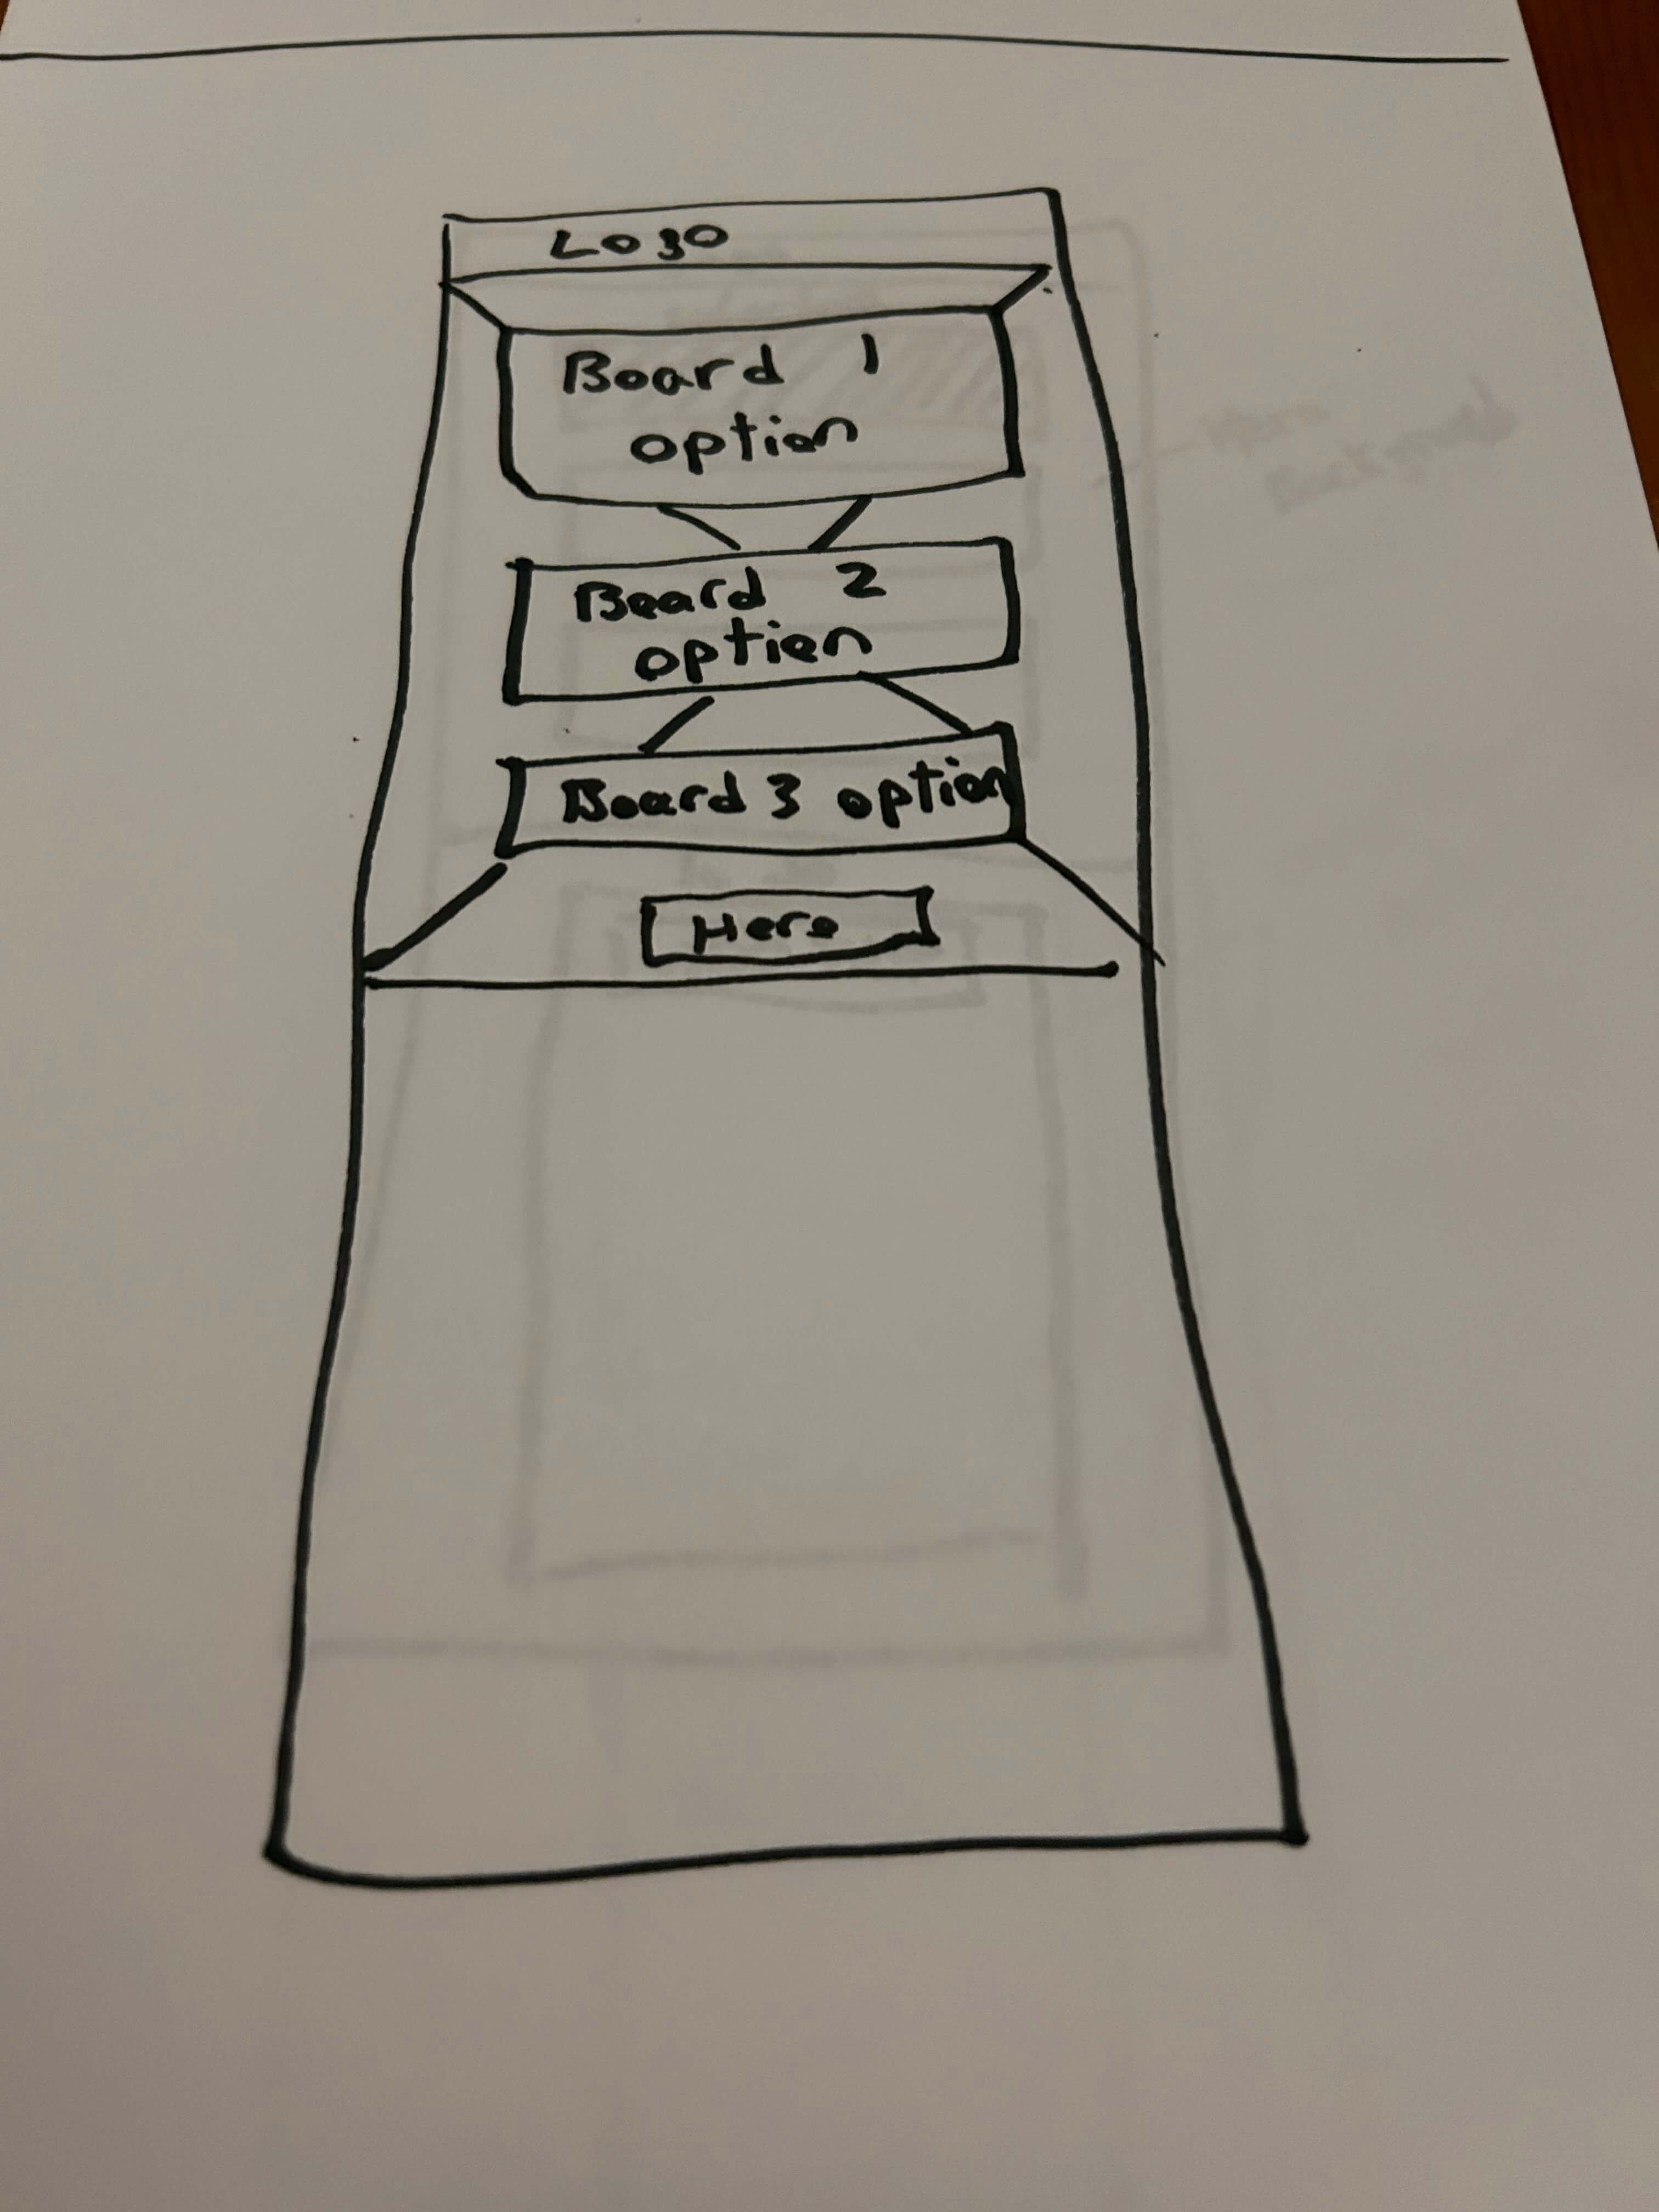 Logo
Board 1
option
Board 2
option
Board 3 option
Hero